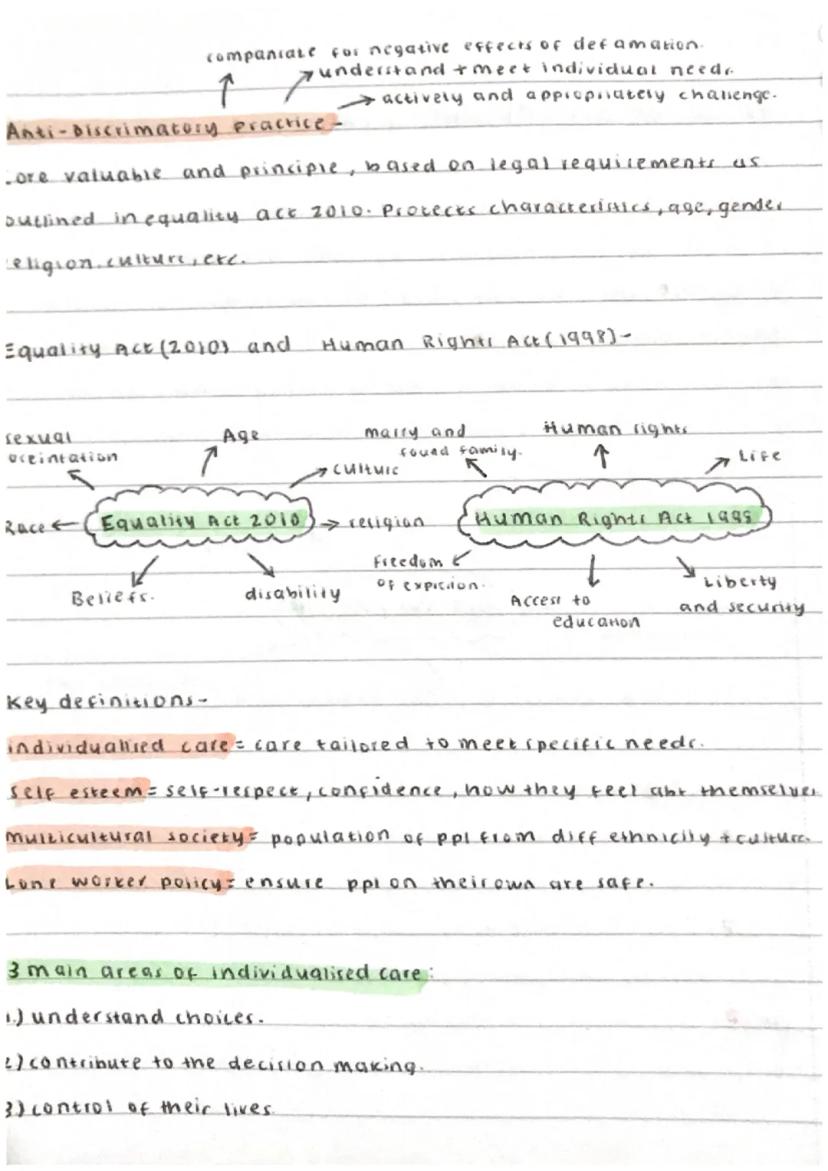 companiate for negative effects of defamation.
understand + meet individual needs.
actively and appropriately challenge.
Anti-Discrimatory Practice -
ore valuable and principle, based on legal requirements us
outlined in equality act 2010. Protects characteristics, age, gender
eligion, culture, etc.
Equality Act (2010) and Human Rights Act (1998) -
sexual
oreintation
Age
culture
Race
Equality Act 2010
religion
Beliefs.
disability
marry and
found family.
Human rights
Life
Human Rights Act 1998
Freedom
of expicion.
Access to
education
Liberty
and security
Key definitions -
individualised care = care tailored to meet specific needs.
self esteem = self-respect, confidence, how they feel abt themselves
multicultural society = population of ppl from diff ethnicity + culture.
Lone worker policy = ensure ppl on their own are safe.
3 main areas of individualised care:
1.) understand choices.
2) contribute to the decision making.
3.) control of their lives.